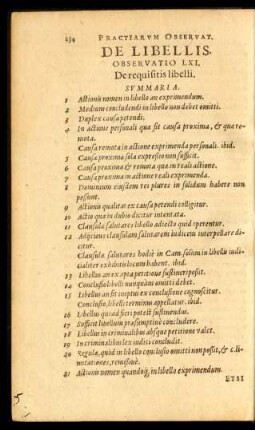 234 PRACTIARVM OBSERVAT.
DE LIBELLIS.
OBSERVATIO LXI.
De requisitis libelli.
SVMMARIA.
1 Actionis nomen in libello an exprimendum.
2 Modum concludendi in libello non debet omitti.
3 Duplex causa petendi.
4 In actione personali qua sit causa proxima, & qua remota.
Causa remota in actione exprimenda personali. ibid.
5 Causa proxima sola expressio non sufficit.
6 Causa proxima & remota qua in reali actione.
7 Causa proxima in actione reali exprimenda.
8 Dominium eiusdem rei plures in solidum habere non possunt.
9 Actionis qualitas ex causa petendi colligitur.
10 Actio qua in dubio dicatur intentata.
11 Clausula salutares libello adiecta quid operentur.
12 Adijciens clausulam salutarem iudicem interpellare dicitur.
Clausula salutares hodie in Cam. solum in libellis iudicialiter exhibitis locum habent. ibid.
13 Libellus an ex apta petitione sustineri possit.
14 Conclusio libelli nunquam omitti debet.
15 Libellus an sit ineptus ex conclusione cognoscitur.
Conclusio, libelli terminus appellatur. ibid.
16 Libellus quasi fieri potest sustinendus.
17 Sufficit libellum praesumptiuè concludere.
18 Libellus in criminalibus absque petitione valet.
19 In criminalibus lex iudici concludit.
20 Regula, quod in libello conclusio omitti non possit, & c. limitationes, remissiuè.
21 Actionis nomen quandoq; in libello exprimendum.
ETSI
5